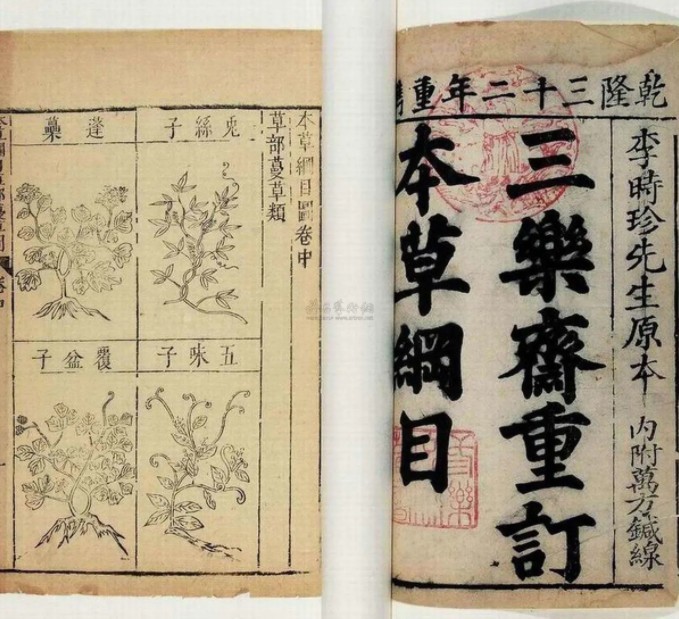 乾隆三十二年重鐫
李時珍先生原本 內附萬方鍼線
三樂齋重訂
本草綱目
本草綱目圖卷中
草部蔓草類
兎絲子
蓬虆
五味子
覆盆子